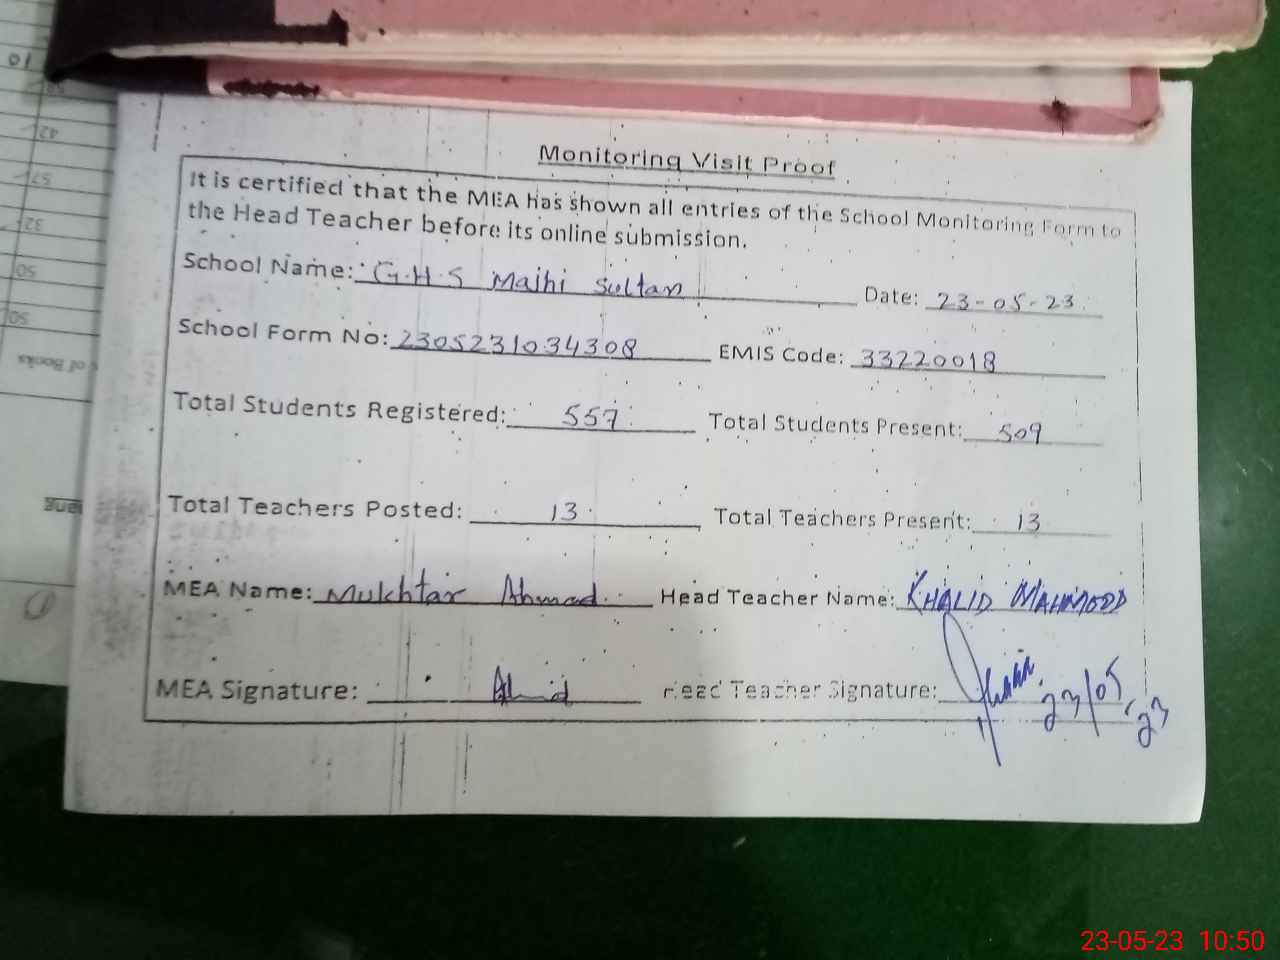 Monitoring Visit Proof
It is certified that the MEA has shown all entries of the School Monitoring Form to
the Head Teacher before its online submission.
School Name: G.H.S Majhi Sultan Date: 23-05-23
School Form No: 2305231034308 EMIS Code: 33220018
Total Students Registered: 557 Total Students Present: 509
Total Teachers Posted: 13 Total Teachers Present: 13
MEA Name: Mukhtar Ahmad Head Teacher Name: KHALID MAHMOOD
MEA Signature: Head Teacher Signature: 23/05/23
10
42
57
32
50
50
of Books
23-05-23 10:50